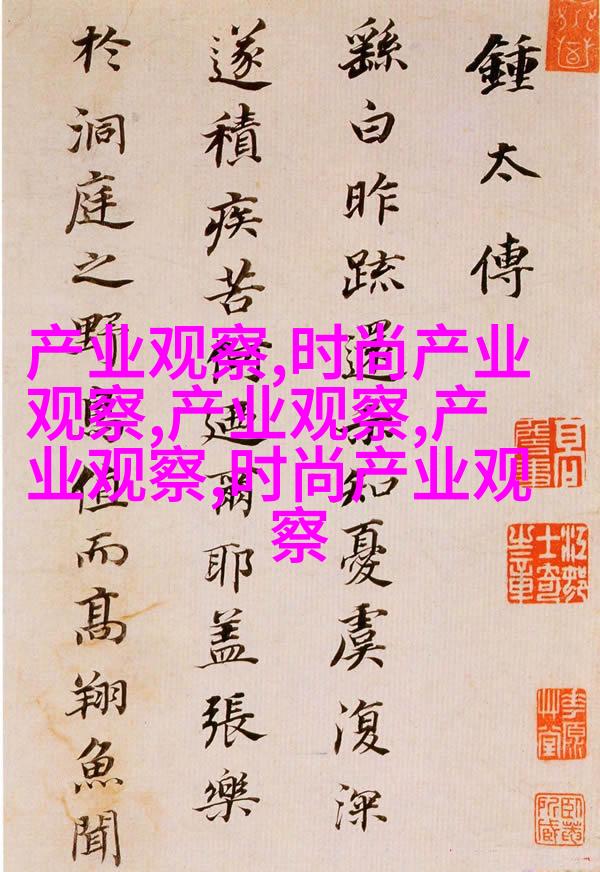 鍾太傅
繇白昨疏還示知憂虞復深
遂積疾苦何迺爾耶蓋張樂
於洞庭之野鳥值而高翔魚聞
产业观察,时尚产业
观察,产业观察,产
业观察,时尚产业观
察